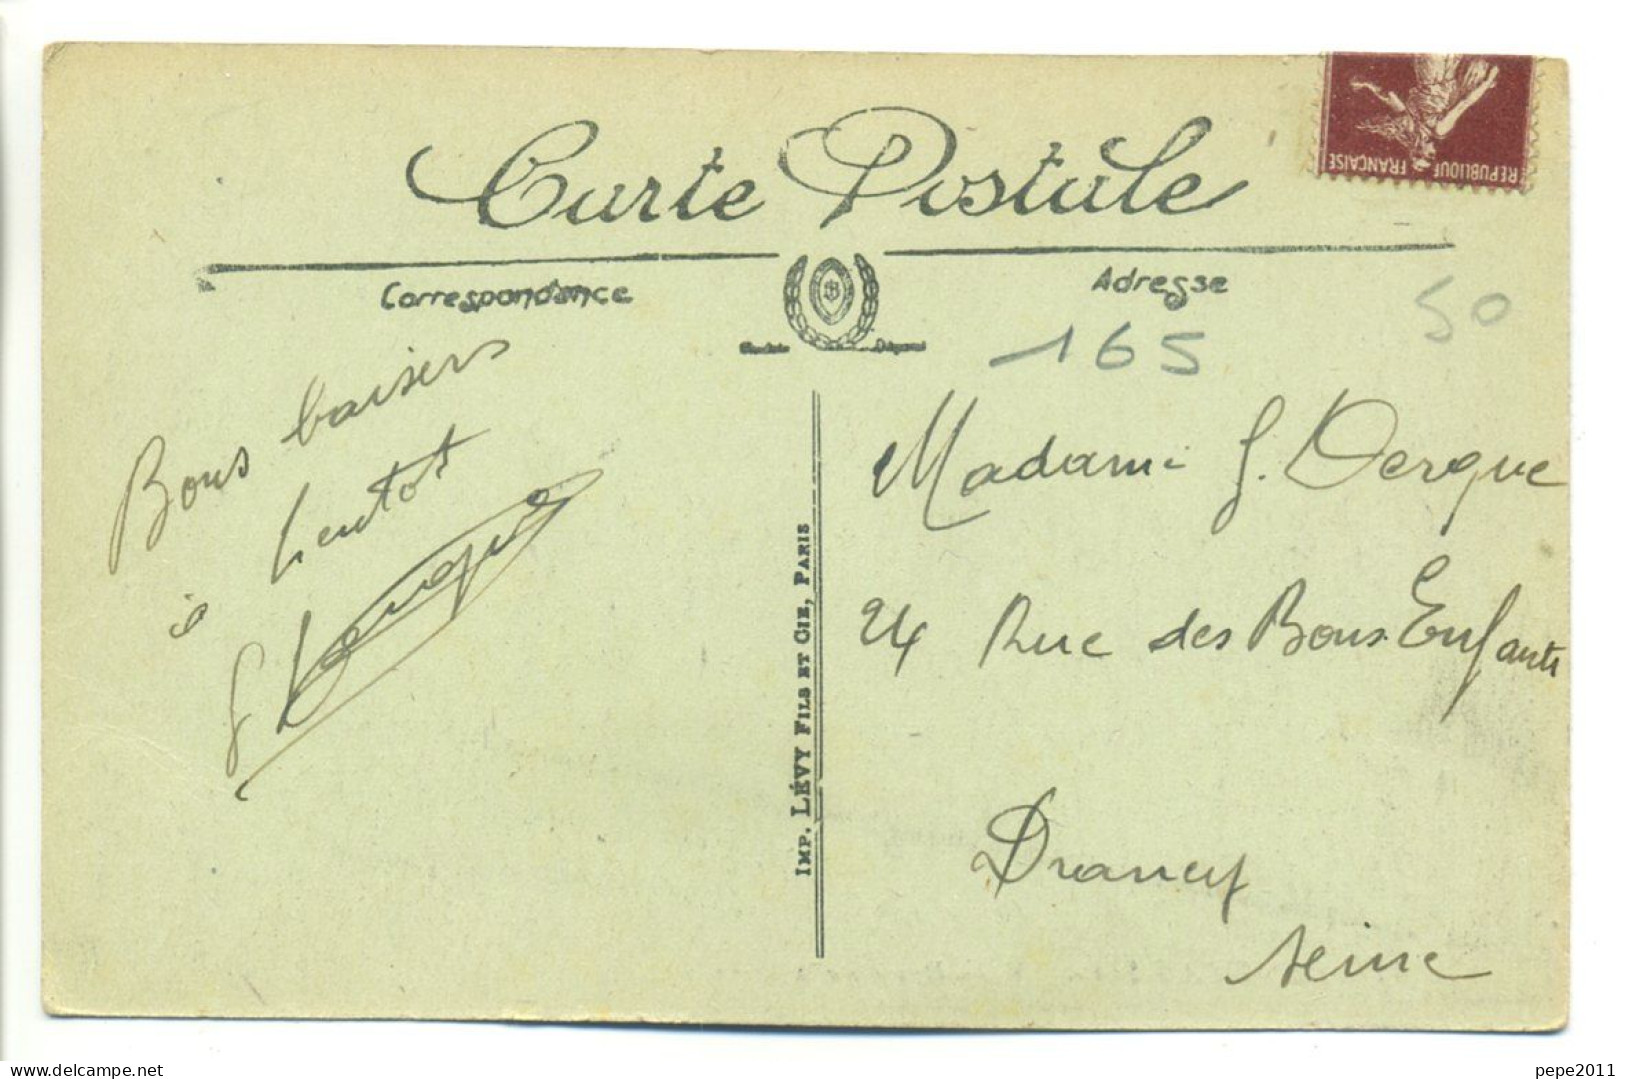 REPUBLIQUE FRANÇAISE
Carte Postale
Correspondance
Adresse
165
50
Bons baisers
à bientot
Madame G. Dergue
24 Rue des Bons Enfants
Drancy
Seine
IMP. LÉVY FILS ET CIE, PARIS
delcampe.net
pepe2011